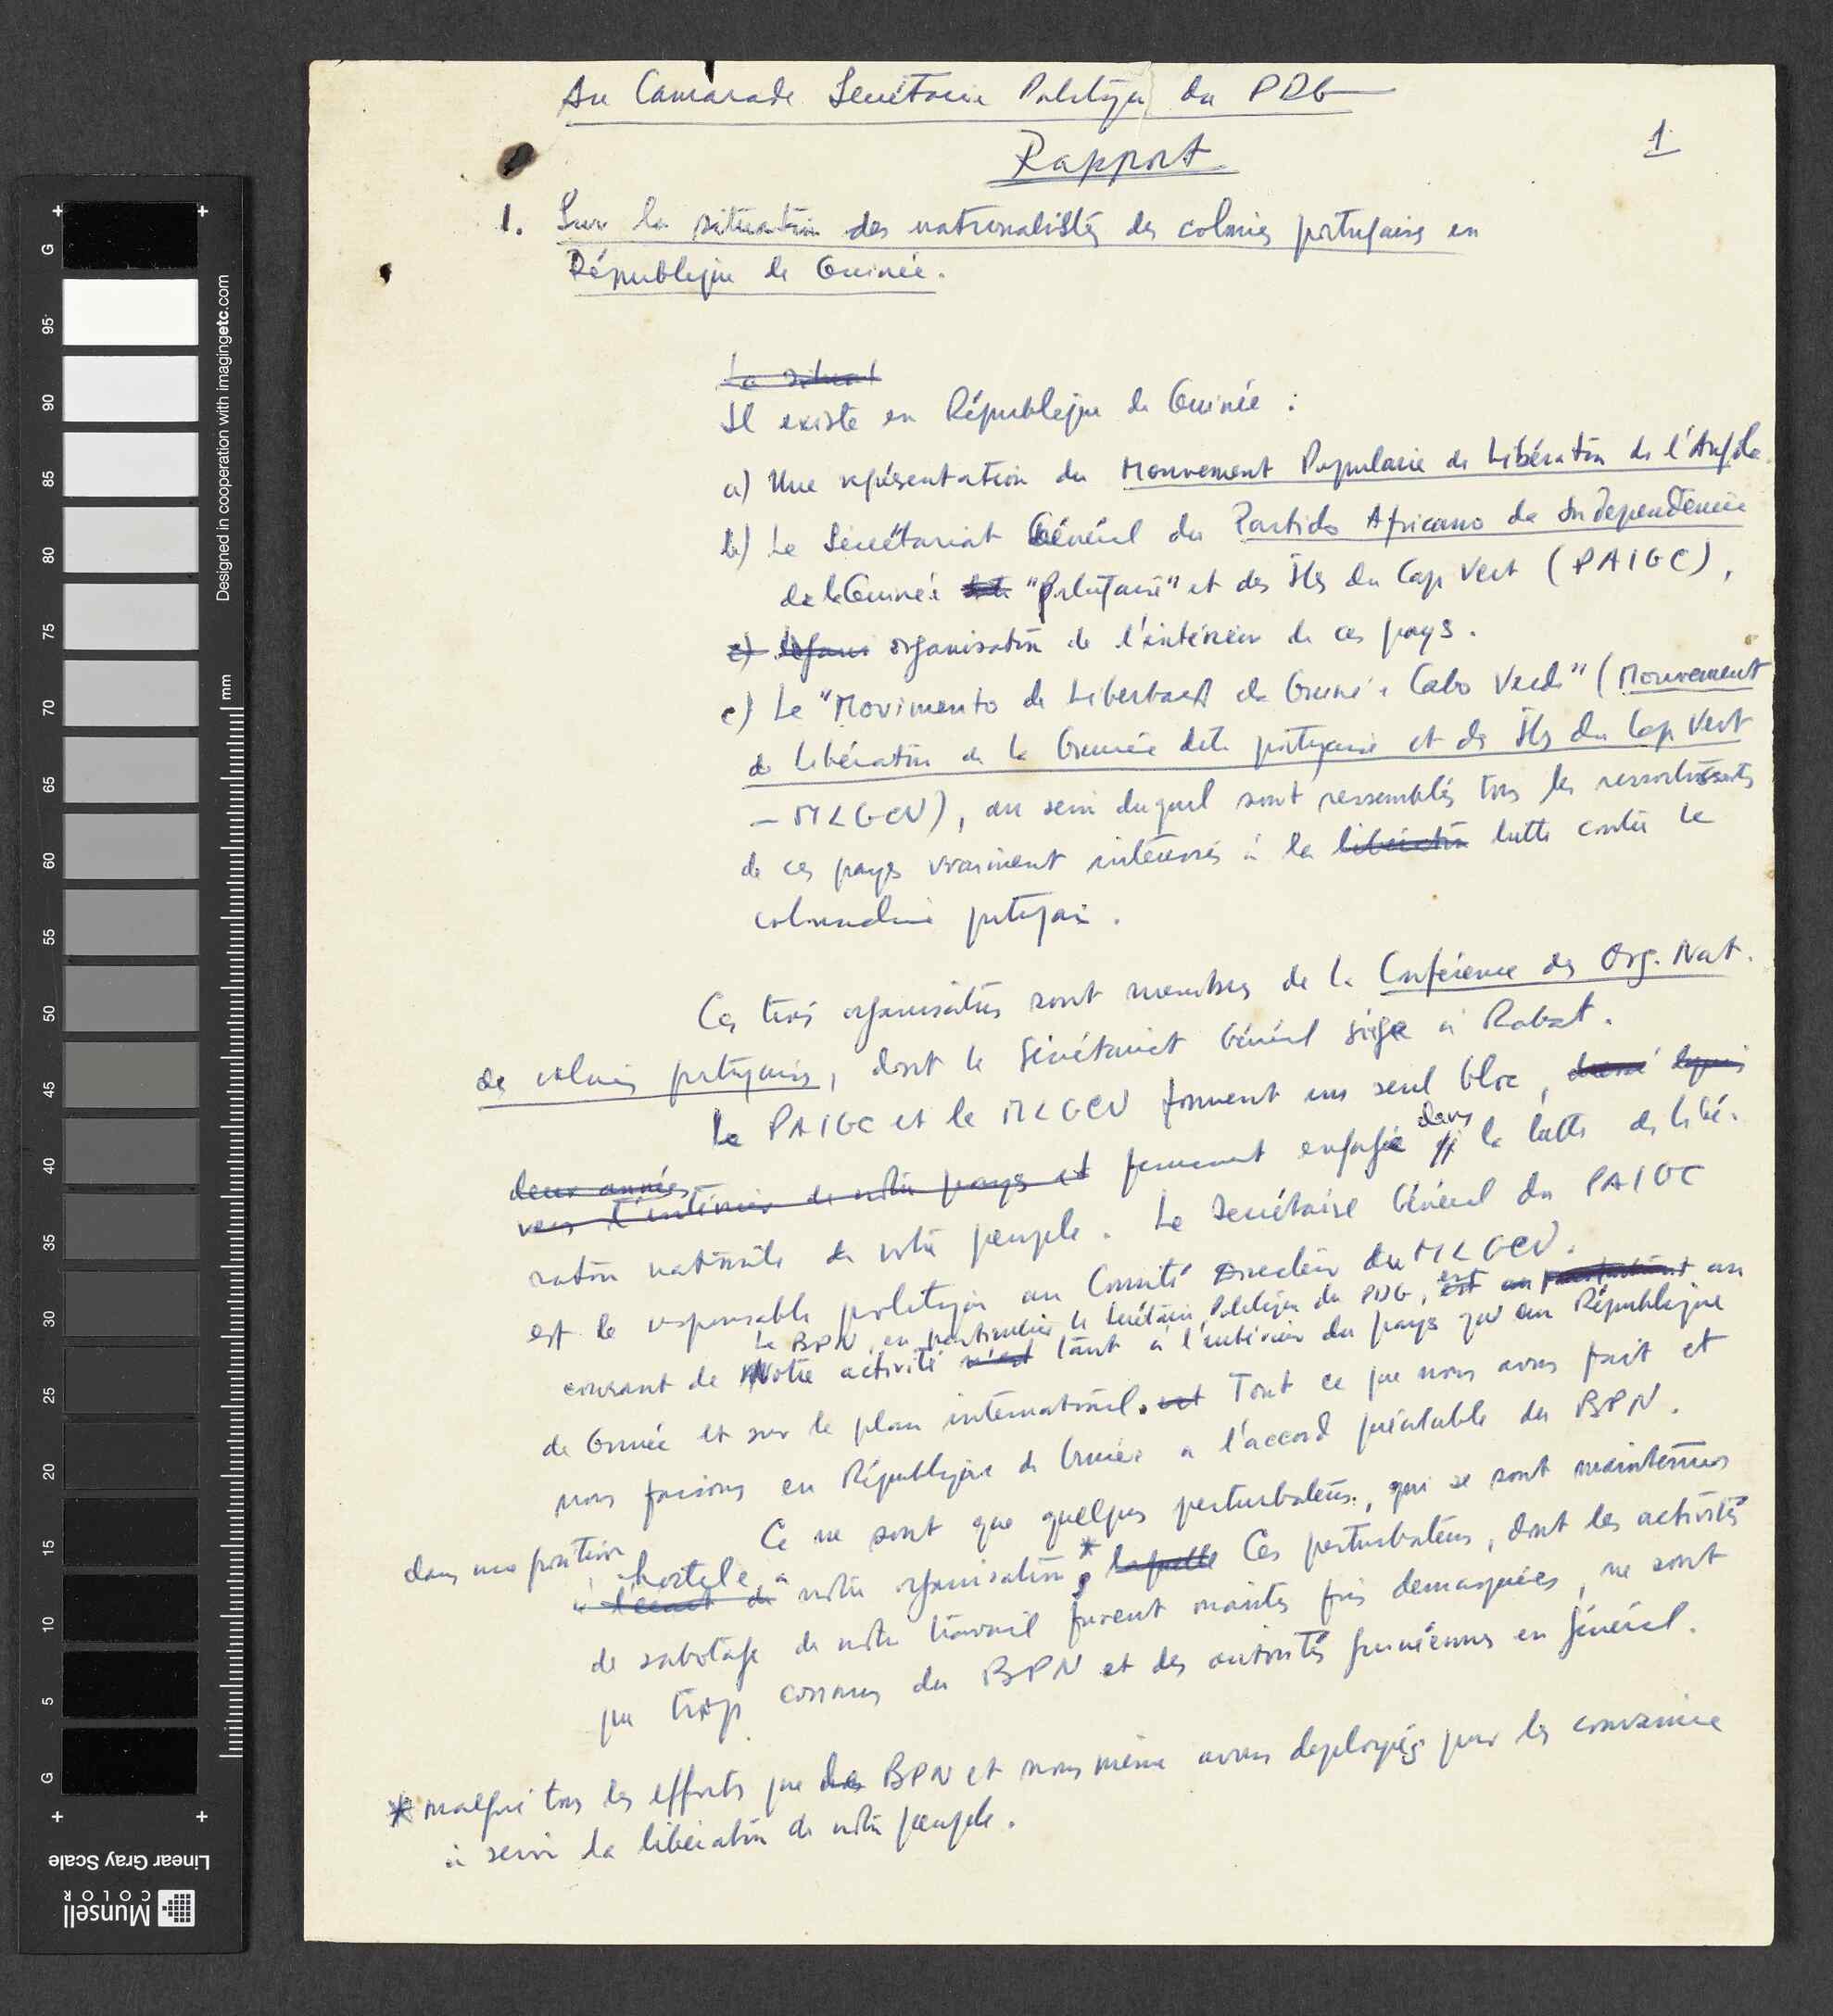 Au Camarade Secrétaire Politique du PDG
Rapport
1
1. Sur la situation des nationalistes des colonies portugaises en
République de Guinée.
La situat
Il existe en République de Guinée :
a) Une représentation du Mouvement Populaire de Libération de l'Angola.
b) Le Secrétariat Général du Partido Africano da Independência
de la Guinée "Portugaise" et des Îles du Cap Vert (PAIGC),
c) organisation de l'intérieur de ces pays.
c) Le "Movimento de Libertação da Guiné e Cabo Verde" (Mouvement
de libération de la Guinée dite portugaise et des Îles du Cap Vert
– MLGCV), au sein duquel sont rassemblés tous les ressortissants
de ces pays vraiment intéressés à la libération lutte contre le
colonialisme portugais.
Ces trois organisations sont membres de la Conférence des Org. Nat.
des colonies portugaises, dont le Secrétariat Général siège à Rabat.
Le PAIGC et le MLGCV forment un seul bloc, depuis
deux années
vers l'intérieur de notre pays et fermement engagé dans la lutte de libé-
ration nationale de notre peuple. Le Secrétaire Général du PAIGC
est le responsable politique au Comité Directeur du MLGCV.
Le BPN, en particulier le Secrétaire Politique du PDG, est au
courant de Notre activité n'est tant à l'intérieur du pays qu'en République
de Guinée et sur le plan international. est Tout ce que nous avons fait et
nous faisons en République de Guinée a l'accord préalable du BPN.
Ce ne sont que quelques perturbateurs, qui se sont maintenus
dans une position hostile à
à l'écart de notre organisation* laquelle Ces perturbateurs, dont les activités
de sabotage de notre travail furent maintes fois demasquées, ne sont
que trop connus du BPN et des autorités guinéennes en général.
* malgré tous les efforts que BPN et nous même avons deployés pour les convaincre
à servir la libération de notre peuple.
Munsell
COLOR
Linear Gray Scale
Designed in cooperation with imagingetc.com
mm
G
95
90
85
80
75
70
65
60
55
50
45
40
35
30
25
20
15
10
5
G